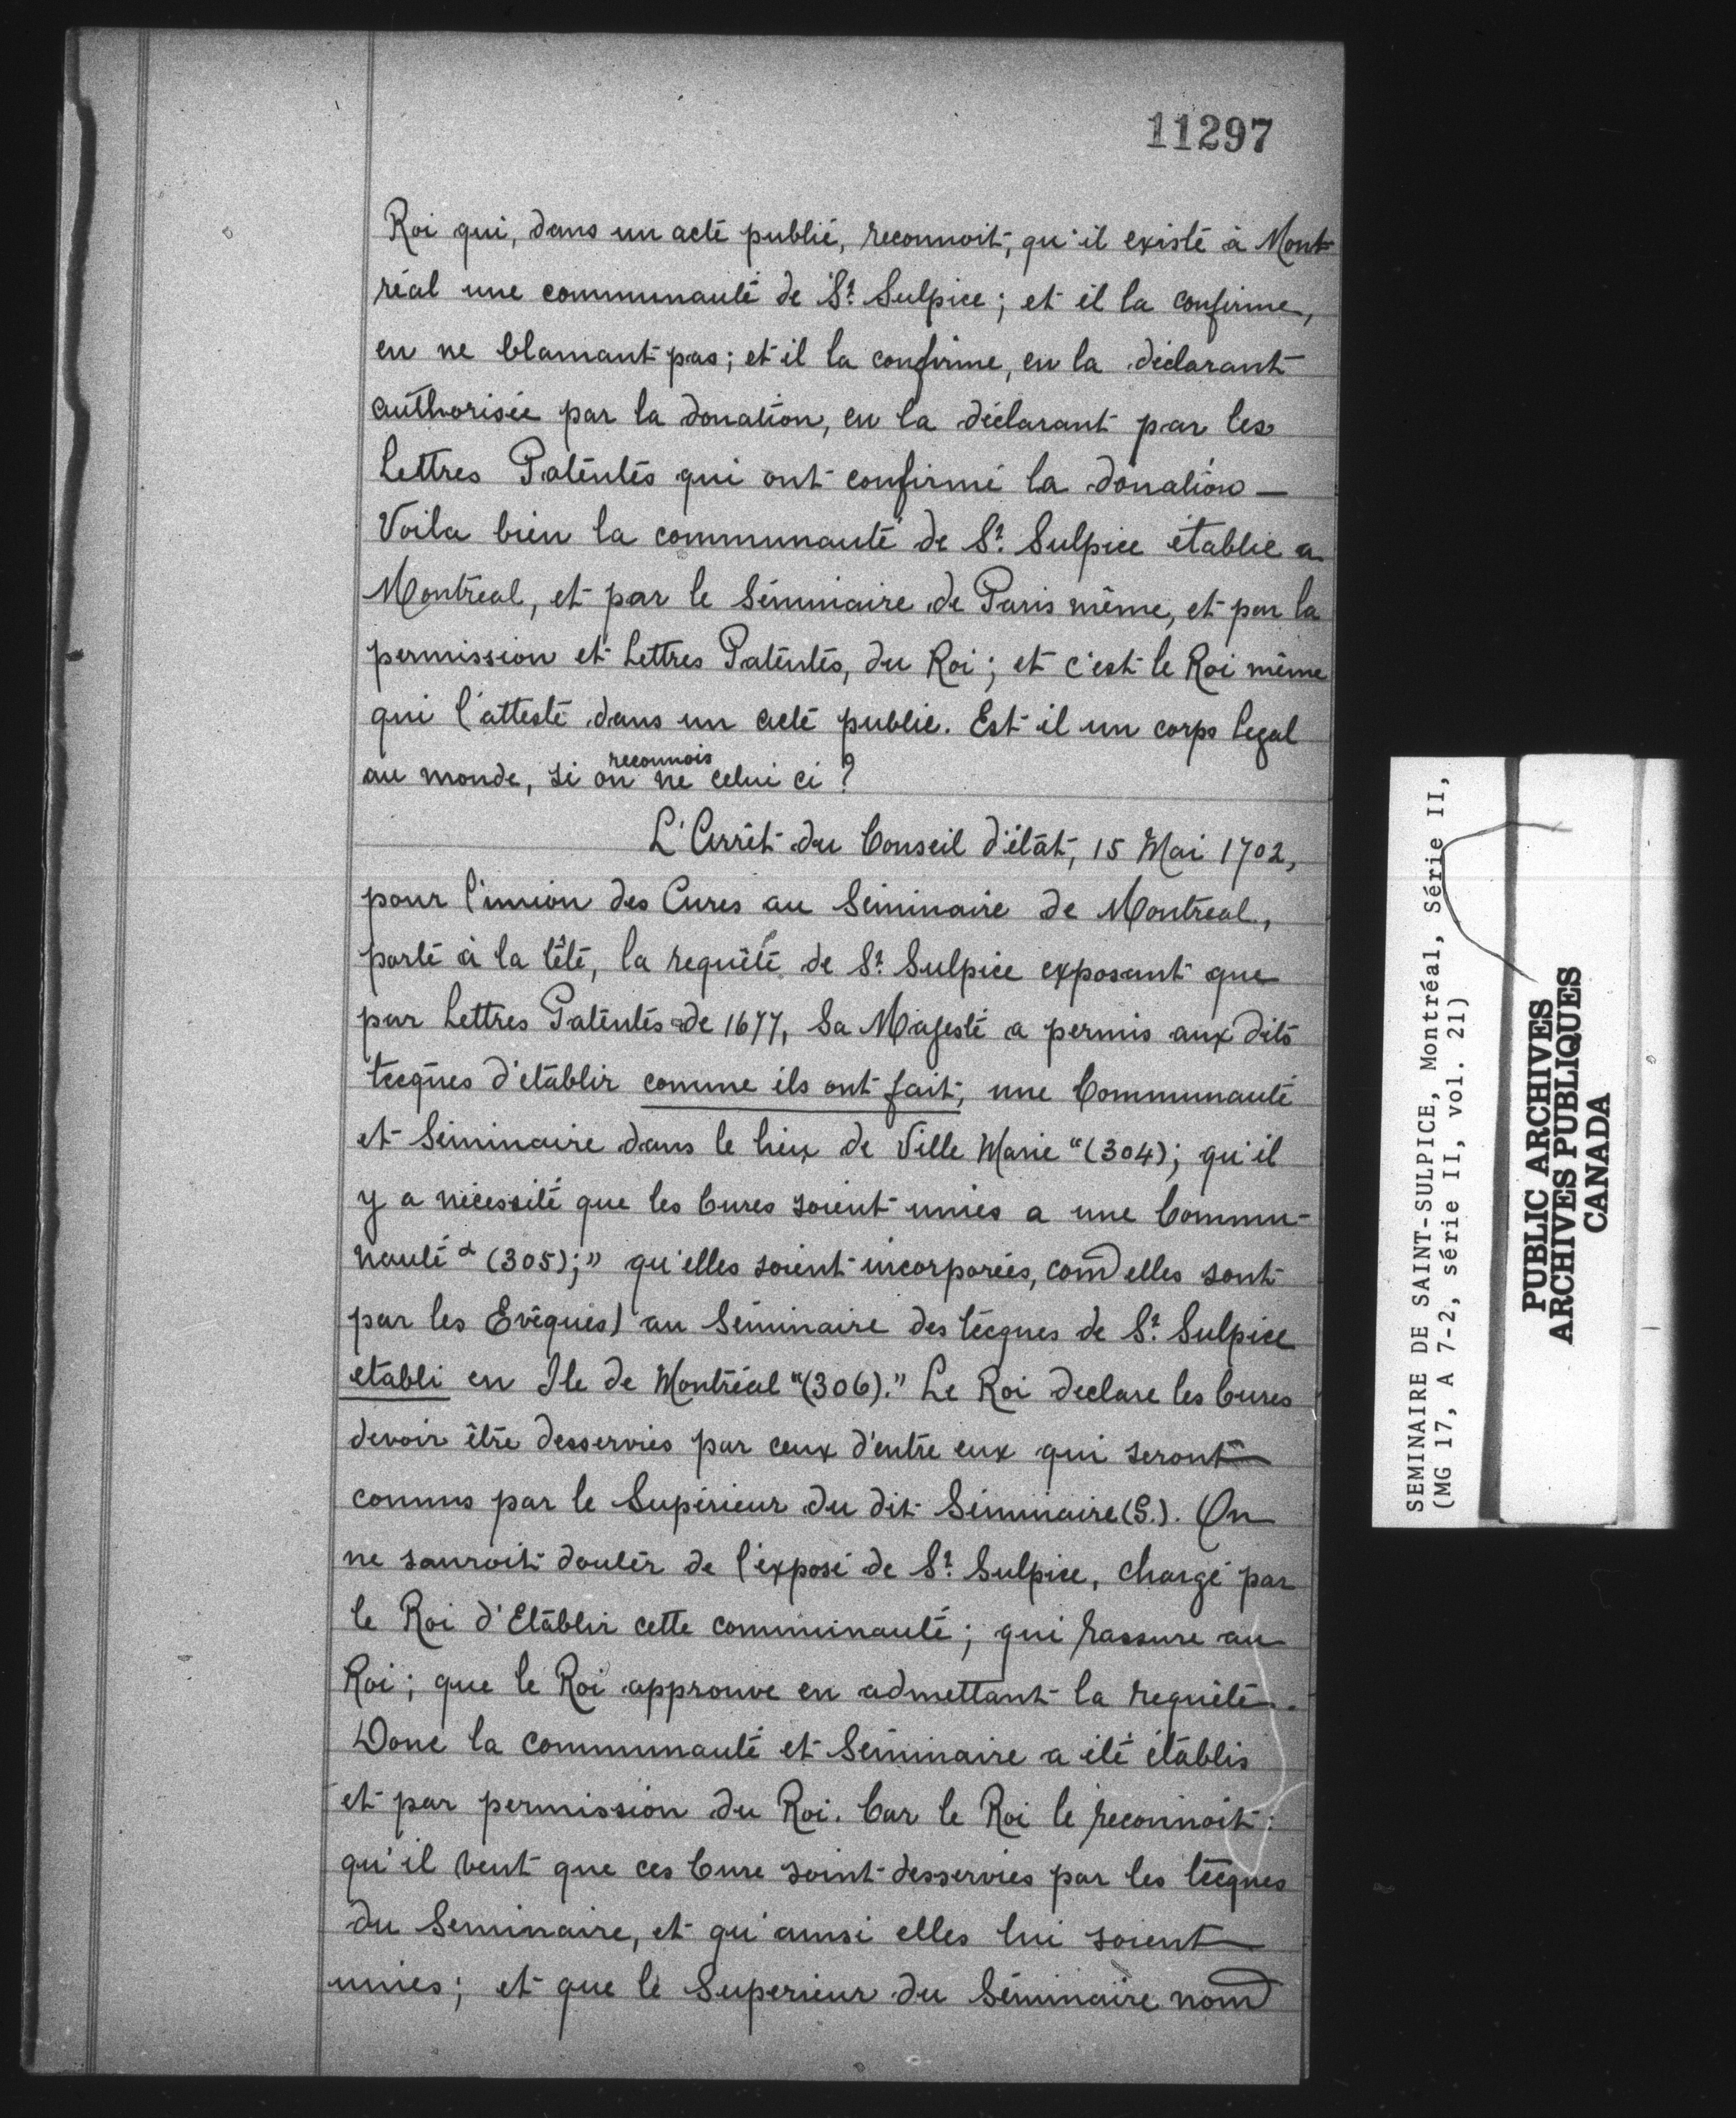 11297
Roi qui, dans un acte public, reconnoit, qu'il existe à Mont-
réal une communauté de St. Sulpice; et il la confirme,
en ne blamant pas; et il la confirme, en la déclarant
authorisée par la donation, en la déclarant par les
Lettres Patentes qui ont confirmé la donation —
Voila bien la communauté de St. Sulpice établie a
Montréal, et par le Séminaire de Paris même, et par la
permission et Lettres Patentes, du Roi; et c'est le Roi même
qui l'atteste dans un acte public. Est il un corps legal
au monde, si on ne reconnois celui ci?
L'Arrêt du Conseil d'état, 15 Mai 1702,
pour l'union des Cures au Séminaire de Montreal,
porte à la tête, la requête de St. Sulpice exposant que
par Lettres Patentes de 1677, Sa Majesté a permis aux dits
Eccques d'etablir comme ils ont fait, une Communauté
et Séminaire dans le lieu de Ville Marie "(304); qu'il
y a nécessité que les Cures soient unies a une Commu-
nauté " (305);" qu'elles soient incorporées, com̄ elles sont
par les Evêques) au Séminaire des Eccques de St. Sulpice
etabli en Ile de Montréal "(306)." Le Roi declare les Cures
devoir être desservies par ceux d'entre eux qui seront
connus par le Supérieur du dit Séminaire (S.). On
ne sauroit douter de l'exposé de St. Sulpice, chargé par
le Roi d'Etablir cette communauté; qui rassure au
Roi; que le Roi approuve en admettant la requête.
Donc la communauté et Séminaire a été établis
et par permission du Roi. Car le Roi le reconnoit:
qu'il veut que ces Cure soint desservies par les Eccques
du Seminaire, et qu'ainsi elles lui soient
unies; et que le Superieur du Séminaire nom̄
SEMINAIRE DE SAINT-SULPICE, Montréal, Série II,
(MG 17, A 7-2, série II, vol. 21)
PUBLIC ARCHIVES
ARCHIVES PUBLIQUES
CANADA